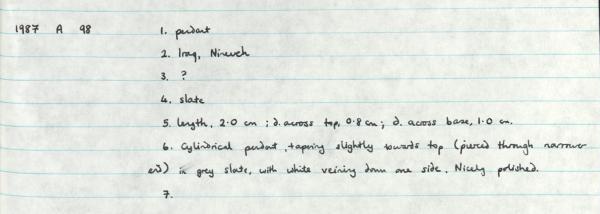 1987 A 98 1. pendant
2. Iraq, Nineveh
3. ?
4. slate
5. length, 2.0 cm ; d. across top, 0.8 cm ; d. across base, 1.0 cm.
6. Cylindrical pendant, tapering slightly towards top (pierced through narrower
end) in grey slate, with white veining down one side. Nicely polished.
7.